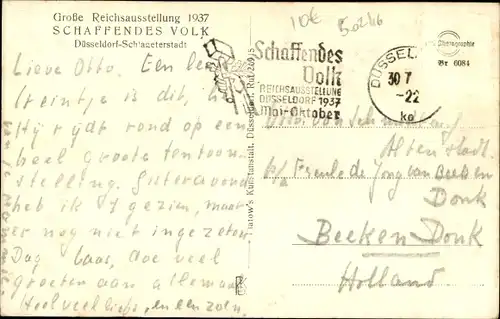 Große Reichsausstellung 1937
SCHAFFENDES VOLK
Düsseldorf-Schlageterstadt
Lieve Otto. Een leu
treintje is dit, he
Hij rijdt rond op een
heel groote tentoon-
stelling. Gisteravond
heb ik 't gezien, maar
er nog niet ingezeten.
Dag baas, doe veel
groeten aan allemaal
Heel veel liefs, en een zoen.
10€
50246
Schaffendes
Volk
REICHSAUSSTELLUNG
DÜSSELDORF 1937
Mai-Oktober
DÜSSEL
30 7
-22
ko
Photographie
Br 6084
Otto von
p/a Freule de Jong van Beek en
Donk
Beek en Donk
Holland
Kunstanstalt, Düsseldorf, Ruf